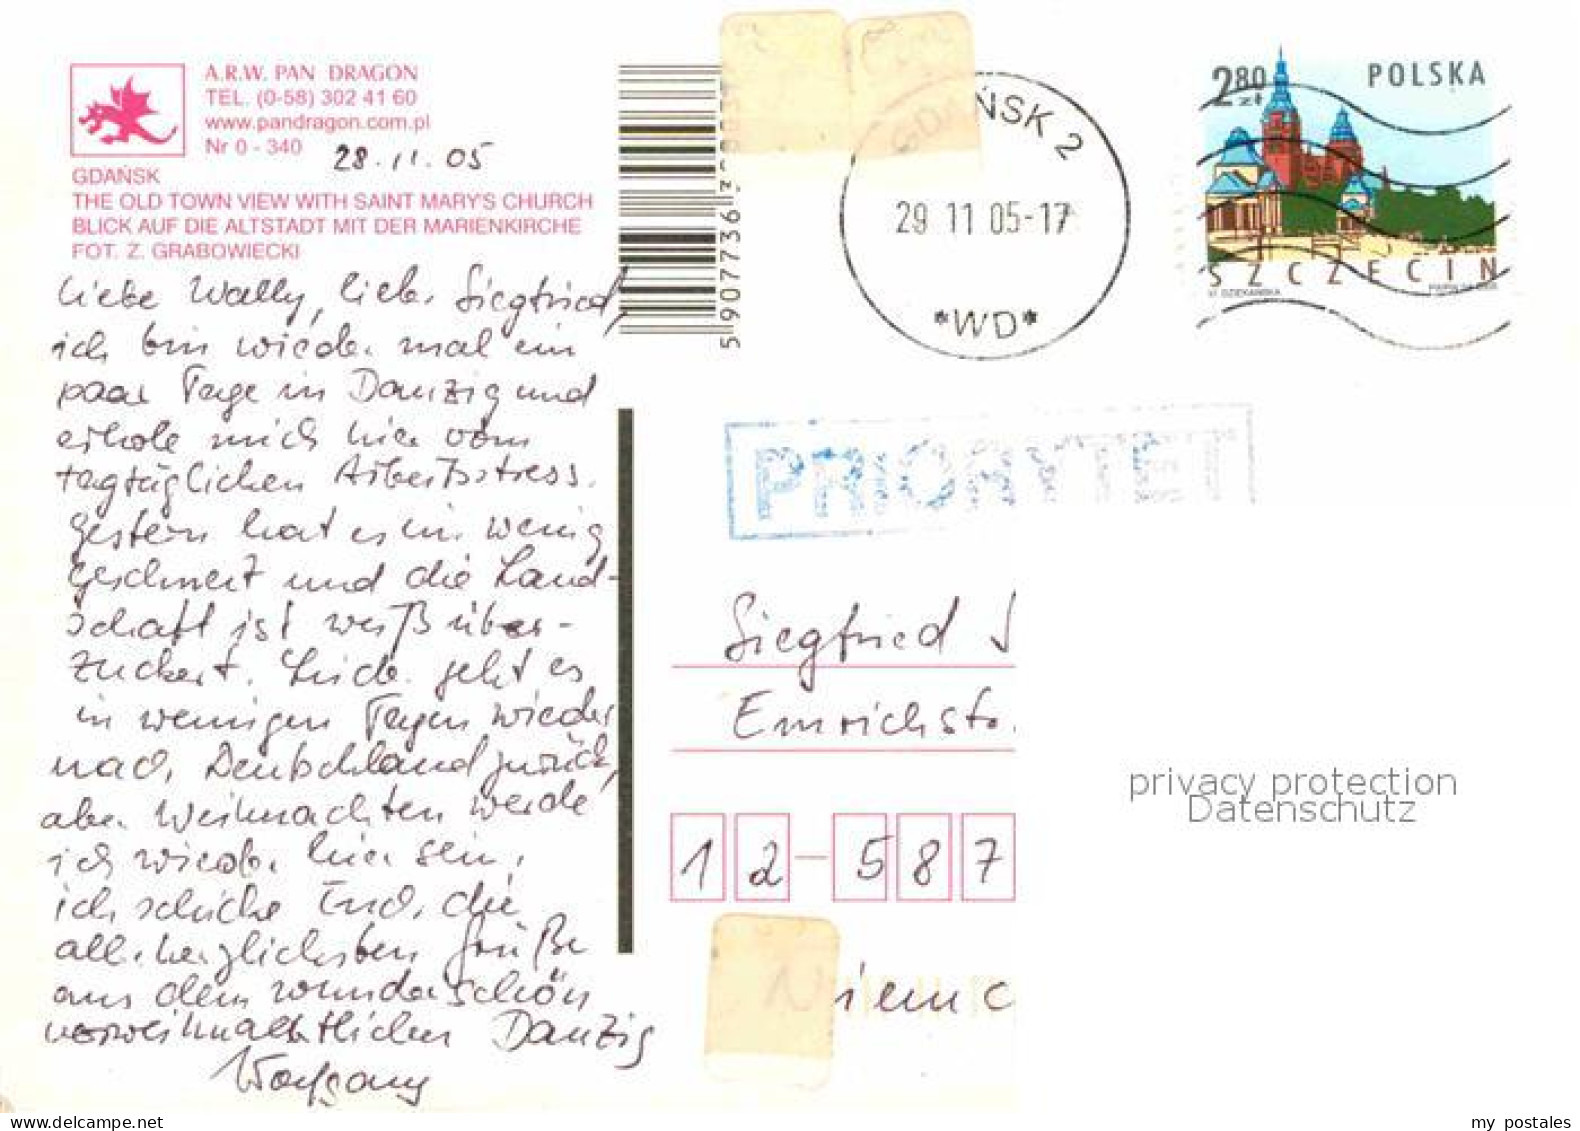 A.R.W. PAN DRAGON
TEL. (0-58) 302 41 60
www.pandragon.com.pl
Nr 0 - 340
28.11.05
GDAŃSK
THE OLD TOWN VIEW WITH SAINT MARY'S CHURCH
BLICK AUF DIE ALTSTADT MIT DER MARIENKIRCHE
FOT. Z. GRABOWIECKI
Liebe Wally, lieber Siegfried,
ich bin wieder mal ein
paar Tage in Danzig und
erhole mich hier vom
tagtäglichen Arbeitsstress.
Gestern hat es ein wenig
geschneit und die Land-
schaft ist weiß über-
zuckert. Leider geht es
in wenigen Tagen wieder
nach Deutschland zurück,
aber Weihnachten werde
ich wieder hier sein.
ich schicke Euch die
allerherzlichsten Grüße
aus dem wunderschön
vorweihnachtlichen Danzig
Wolfgang
5 907736
ŃSK 2
29 11 05-17
*WD*
2,80 zł
POLSKA
SZCZECIN
PRIORYTET
Siegfried
Emrichstr.
12-587
Niemc
privacy protection
Datenschutz
my postales